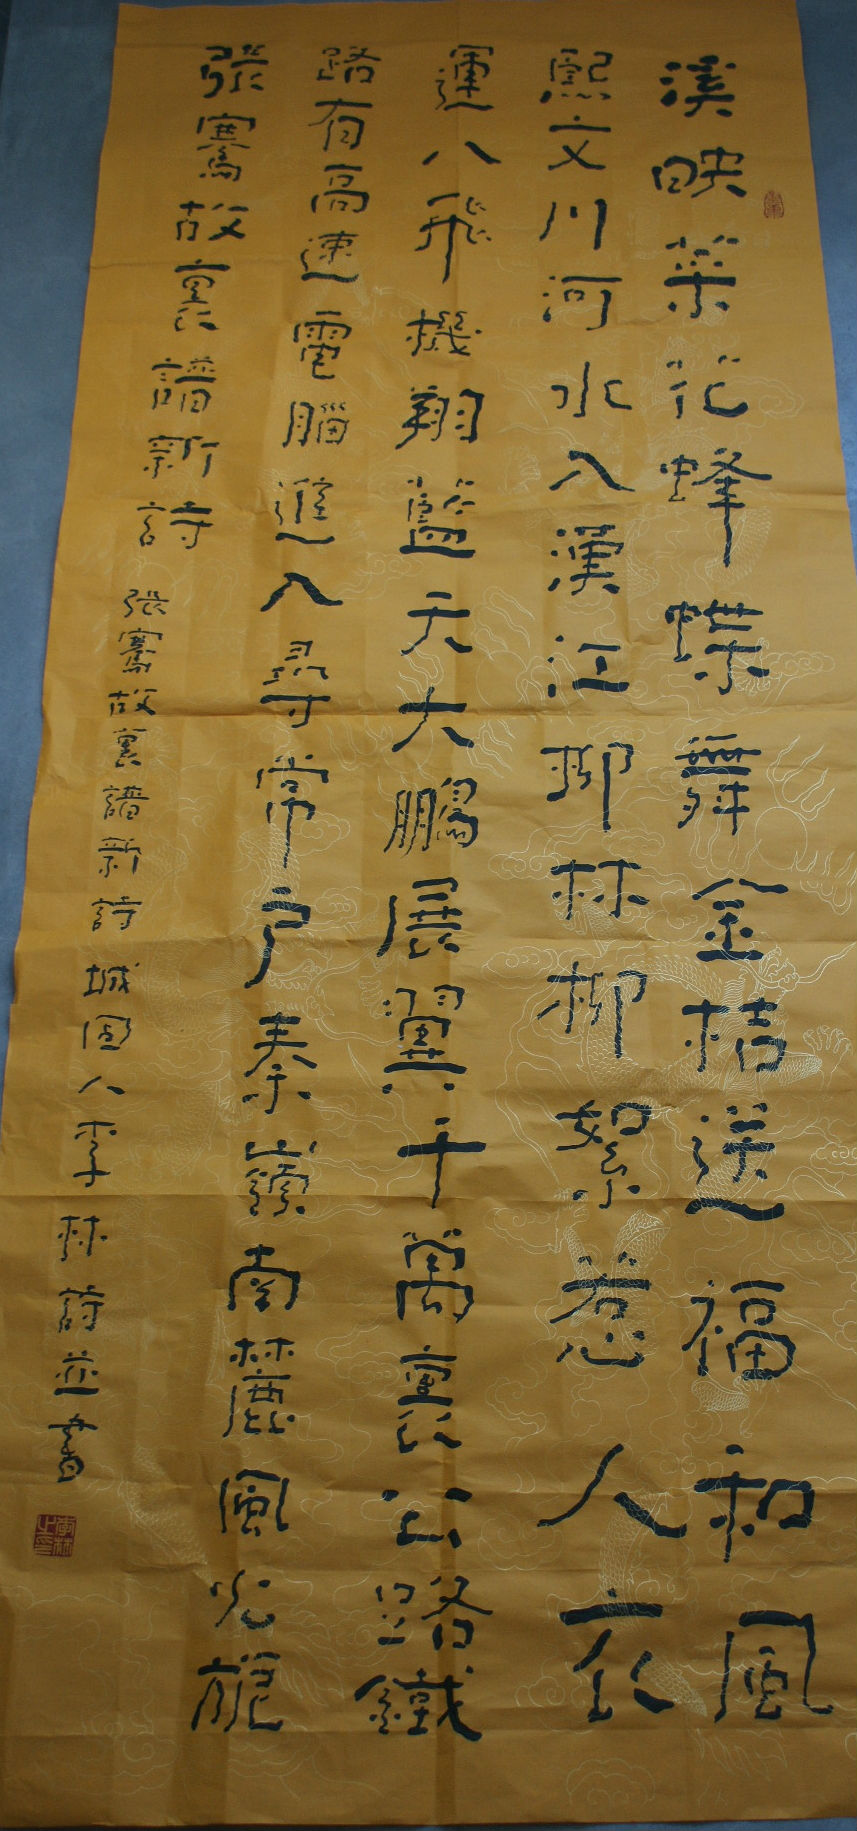 溪映菜花蜂蝶舞金桔送福和風
熙文川河水入漢江柳林柳絮惹人衣
運八飛機翔藍天大鵬展翼千萬裏公路鐵
路有高速電腦進入尋常户秦嶺南麓風光旎
張騫故裏譜新詩
張騫故裏譜新詩城固人李林詩並書
李林之印